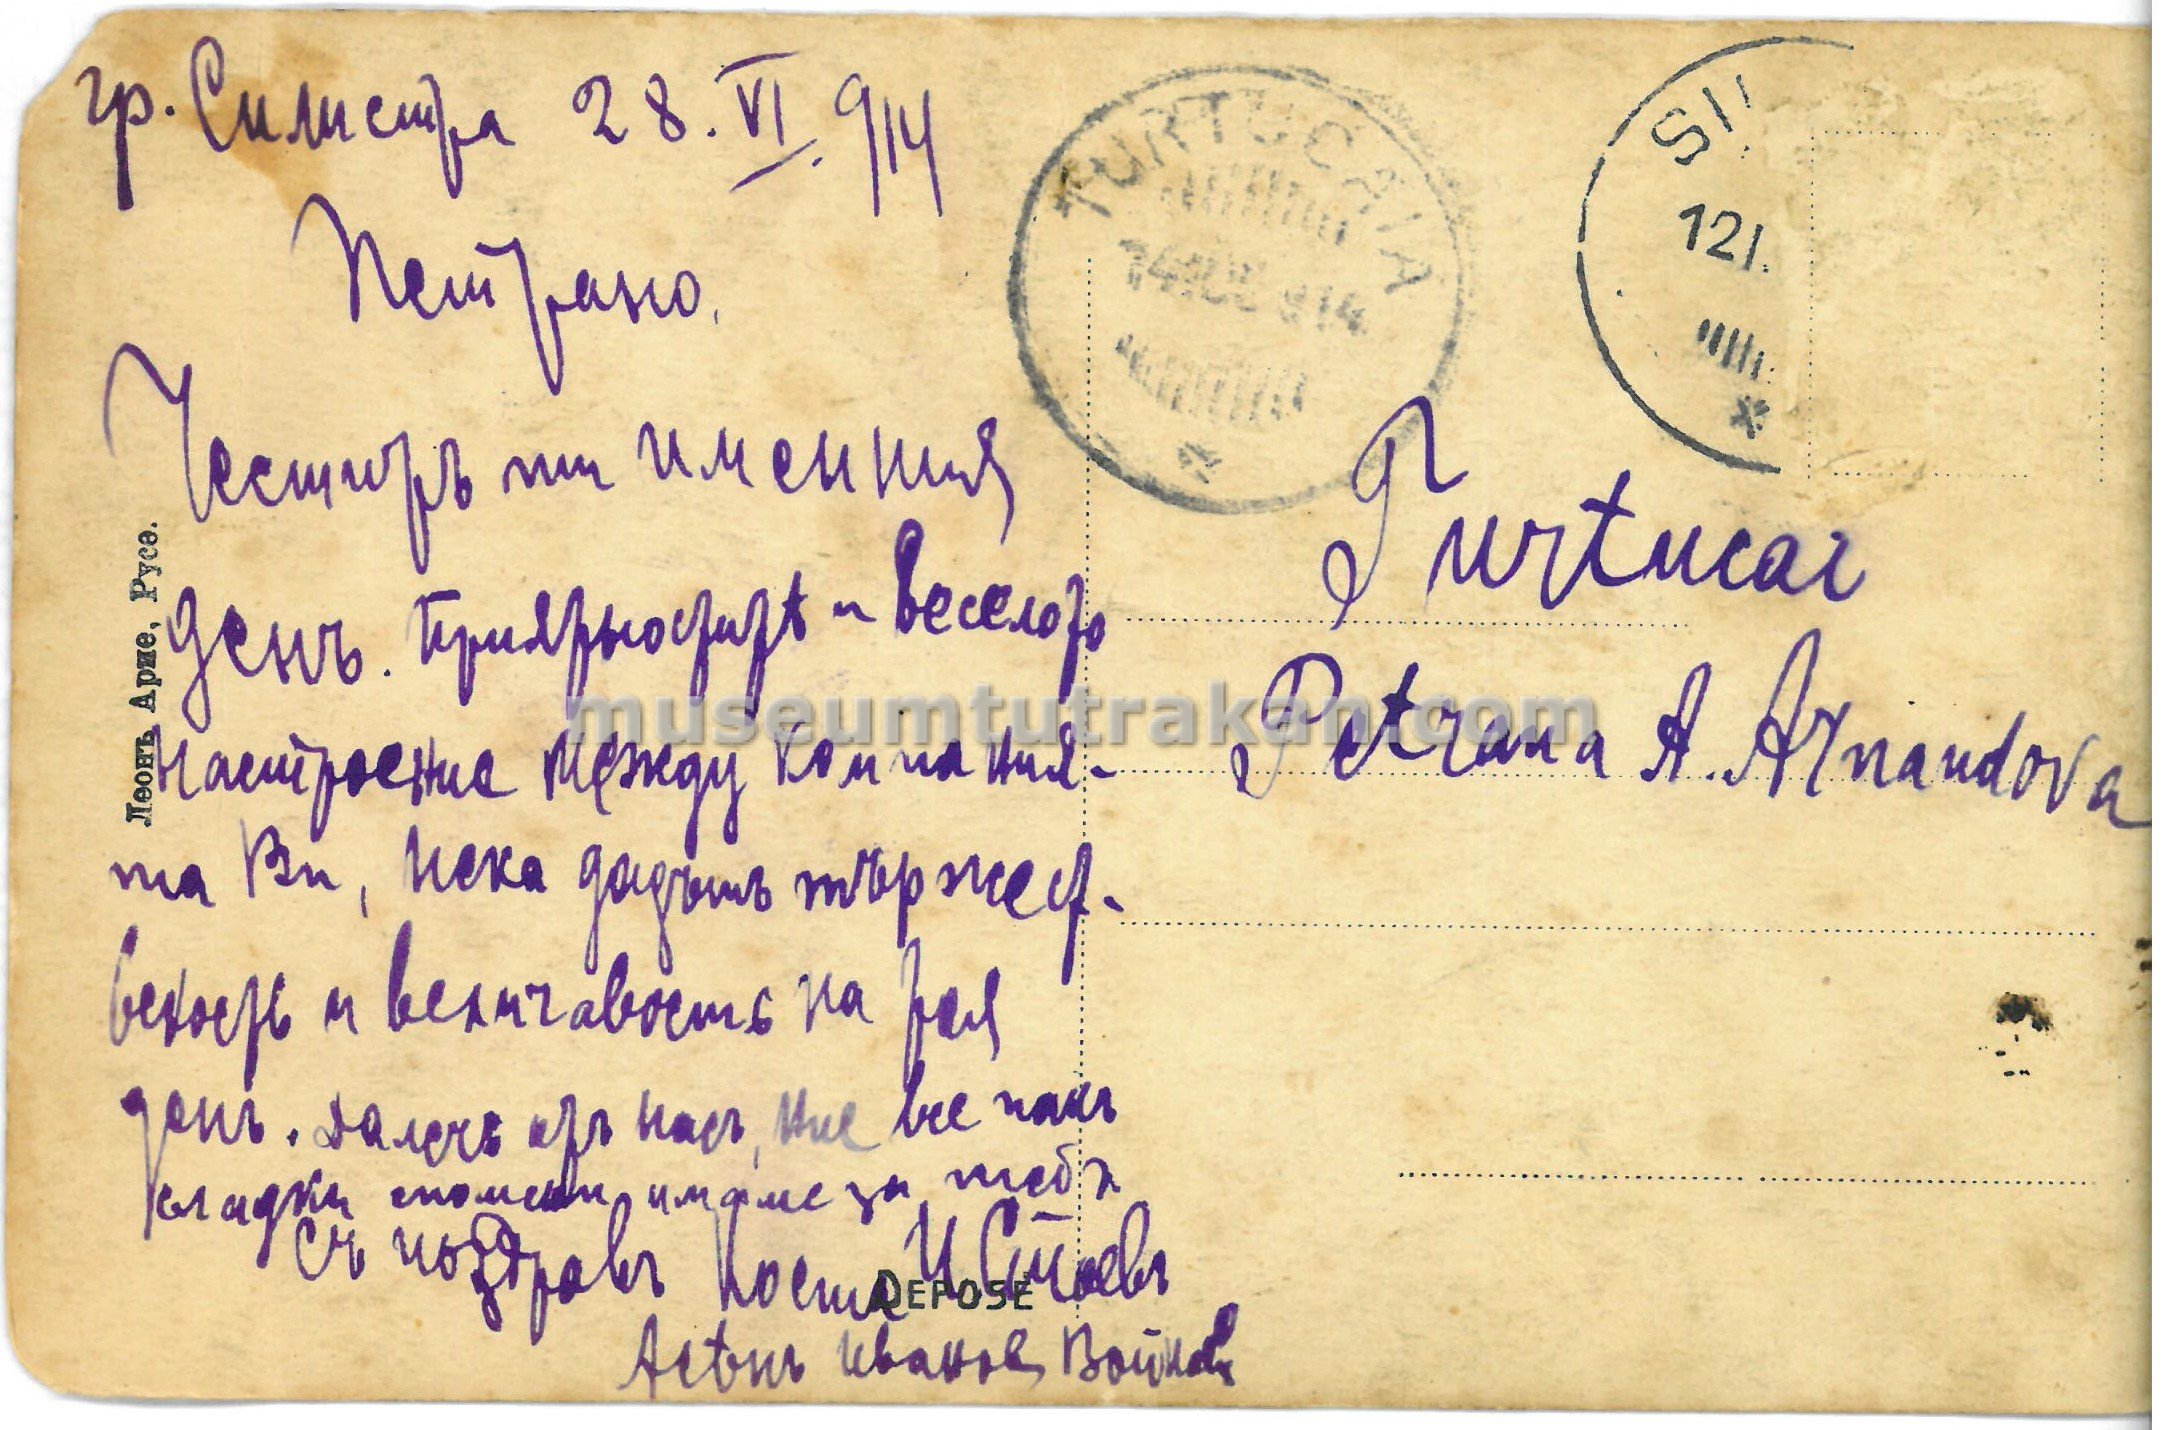 гр. Силистра 28. VI. 914
Петрано.
Честитъ ти именния
день. Приятноститѣ и веселото
настроение между компания-
та Ви, нека дадатъ тържест-
веность и величавость на тоя
день. Далечъ отъ насъ, ние все пакъ
сладки спомени имаме за тебѣ
Съ поздравъ Коста И Стоевъ
Асѣнъ Иванов Войновъ
Леонъ Арие, Русе.
DEPOSÉ
TURTUCAIA
14 914
SI
121
Turtucai
Petrana A. Arnaudova
museumtutrakan.com